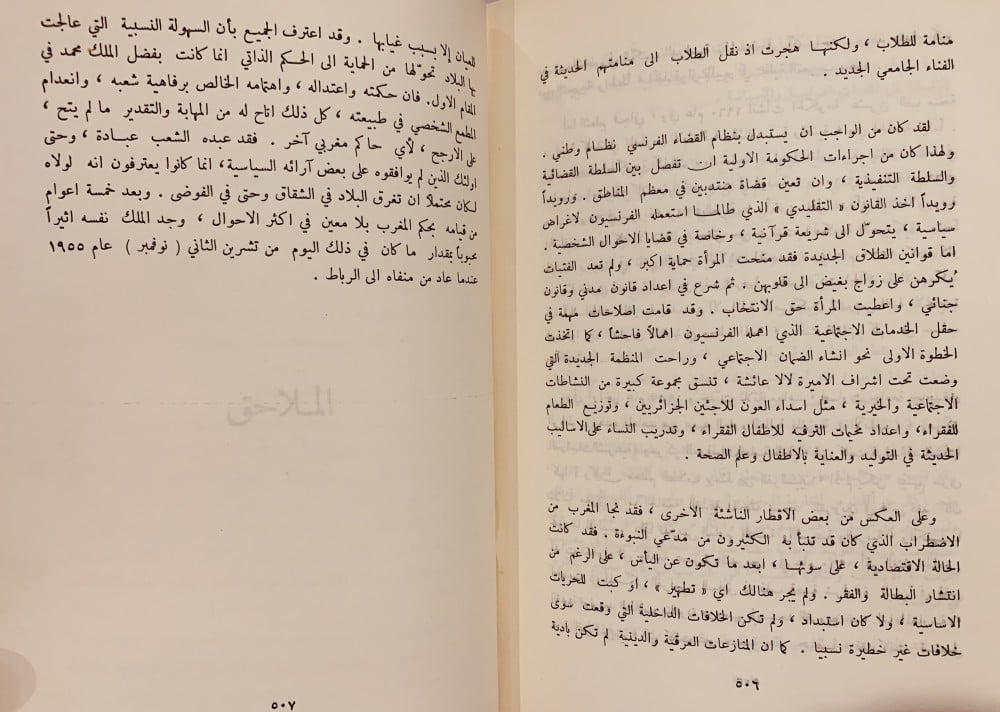 منامة للطلاب ، ولكنها هجرت اذ نقل الطلاب الى منامتهم الحديثة في
الفناء الجامعي الجديد .
لقد كان من الواجب ان يستبدل بنظام القضاء الفرنسي نظام وطني .
ولهذا كان من اجراءات الحكومة الاولية ان تفصل بين السلطة القضائية
والسلطة التنفيذية ، وان تعين قضاة منتدبين في معظم المناطق . ورويداً
رويداً اخذ القانون « التقليدي » الذي طالما استعمله الفرنسيون لاغراض
سياسية ، يتحوّل الى شريعة قرآنية ، وخاصة في قضايا الاحوال الشخصية .
اما قوانين الطلاق الجديدة فقد منحت المرأة حماية اكبر ، ولم تعد الفتيات
يُكرهن على زواج بغيض الى قلوبهن . ثم شرع في اعداد قانون مدني وقانون
جنائي ، واعطيت المرأة حق الانتخاب . وقد قامت اصلاحات مهمة في
حقل الخدمات الاجتماعية الذي اهمله الفرنسيون اهمالاً فاحشاً ، كما اتخذت
الخطوة الاولى نحو انشاء الضمان الاجتماعي ، وراحت المنظمة الجديدة التي
وضعت تحت اشراف الاميرة لالا عائشة ، تنسق مجموعة كبيرة من النشاطات
الاجتماعية والخيرية ، مثل اسداء العون للاجئين الجزائريين ، وتوزيع الطعام
للفقراء، واعداد مخيمات الترفيه للاطفال الفقراء ، وتدريب النساء على الاساليب
الحديثة في التوليد والعناية بالاطفال وعلم الصحة .
وعلى العكس من بعض الاقطار الناشئة الاخرى ، فقد نجا المغرب من
الاضطراب الذي كان قد تنبأ به الكثيرون من مدّعي النبوءة . فقد كانت
الحالة الاقتصادية ، على سوئها ، ابعد ما تكون عن اليأس ، على الرغم من
انتشار البطالة والفقر . ولم يجر هنالك اي « تطهير » ، او كبت للحريات
الاساسية ، ولا كان استبداد ، ولم تكن الخلافات الداخلية التي وقعت سوى
خلافات غير خطيرة نسبيا . كما ان المنازعات العرقية والدينية لم تكن بادية
٥٠٦
للعيان إلا بسبب غيابها . وقد اعترف الجميع بأن السهولة النسبية التي عالجت
بها البلاد تحوّلها من الحماية الى الحكم الذاتي انما كانت بفضل الملك محمد في
المقام الاول. فان حكمته واعتداله ، واهتمامه الخالص برفاهية شعبه ، وانعدام
المطمع الشخصي في طبيعته ، كل ذلك اتاح له من المهابة والتقدير ما لم يتح ،
على الارجح ، لأي حاكم مغربي آخر . فقد عبده الشعب عبادة ، وحتى
اولئك الذين لم يوافقوه على بعض آرائه السياسية، انما كانوا يعترفون انه لولاه
لكان محتملاً ان تغرق البلاد في الشقاق وحتى في الفوضى . وبعد خمسة اعوام
من قيامه بحكم المغرب بلا معين في اكثر الاحوال ، وجد الملك نفسه اثيراً
محبوباً بمقدار ما كان في ذلك اليوم من تشرين الثاني ( نوفمبر ) عام ١٩٥٥
عندما عاد من منفاه الى الرباط .
٥٠٧